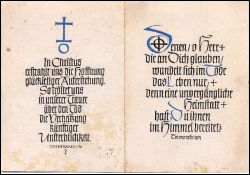 In Christus
erstrahlt uns die Hoffnung
glückseliger Auferstehung.
So tröstet uns
in unserer Trauer
über den Tod
die Verheißung
künftiger
Unsterblichkeit.
Denen, o Herr
die an Dich glauben,
wandelt sich im Tode
das Leben nur,
denn eine unvergängliche
Heimstatt
hast Du ihnen
im Himmel bereitet.